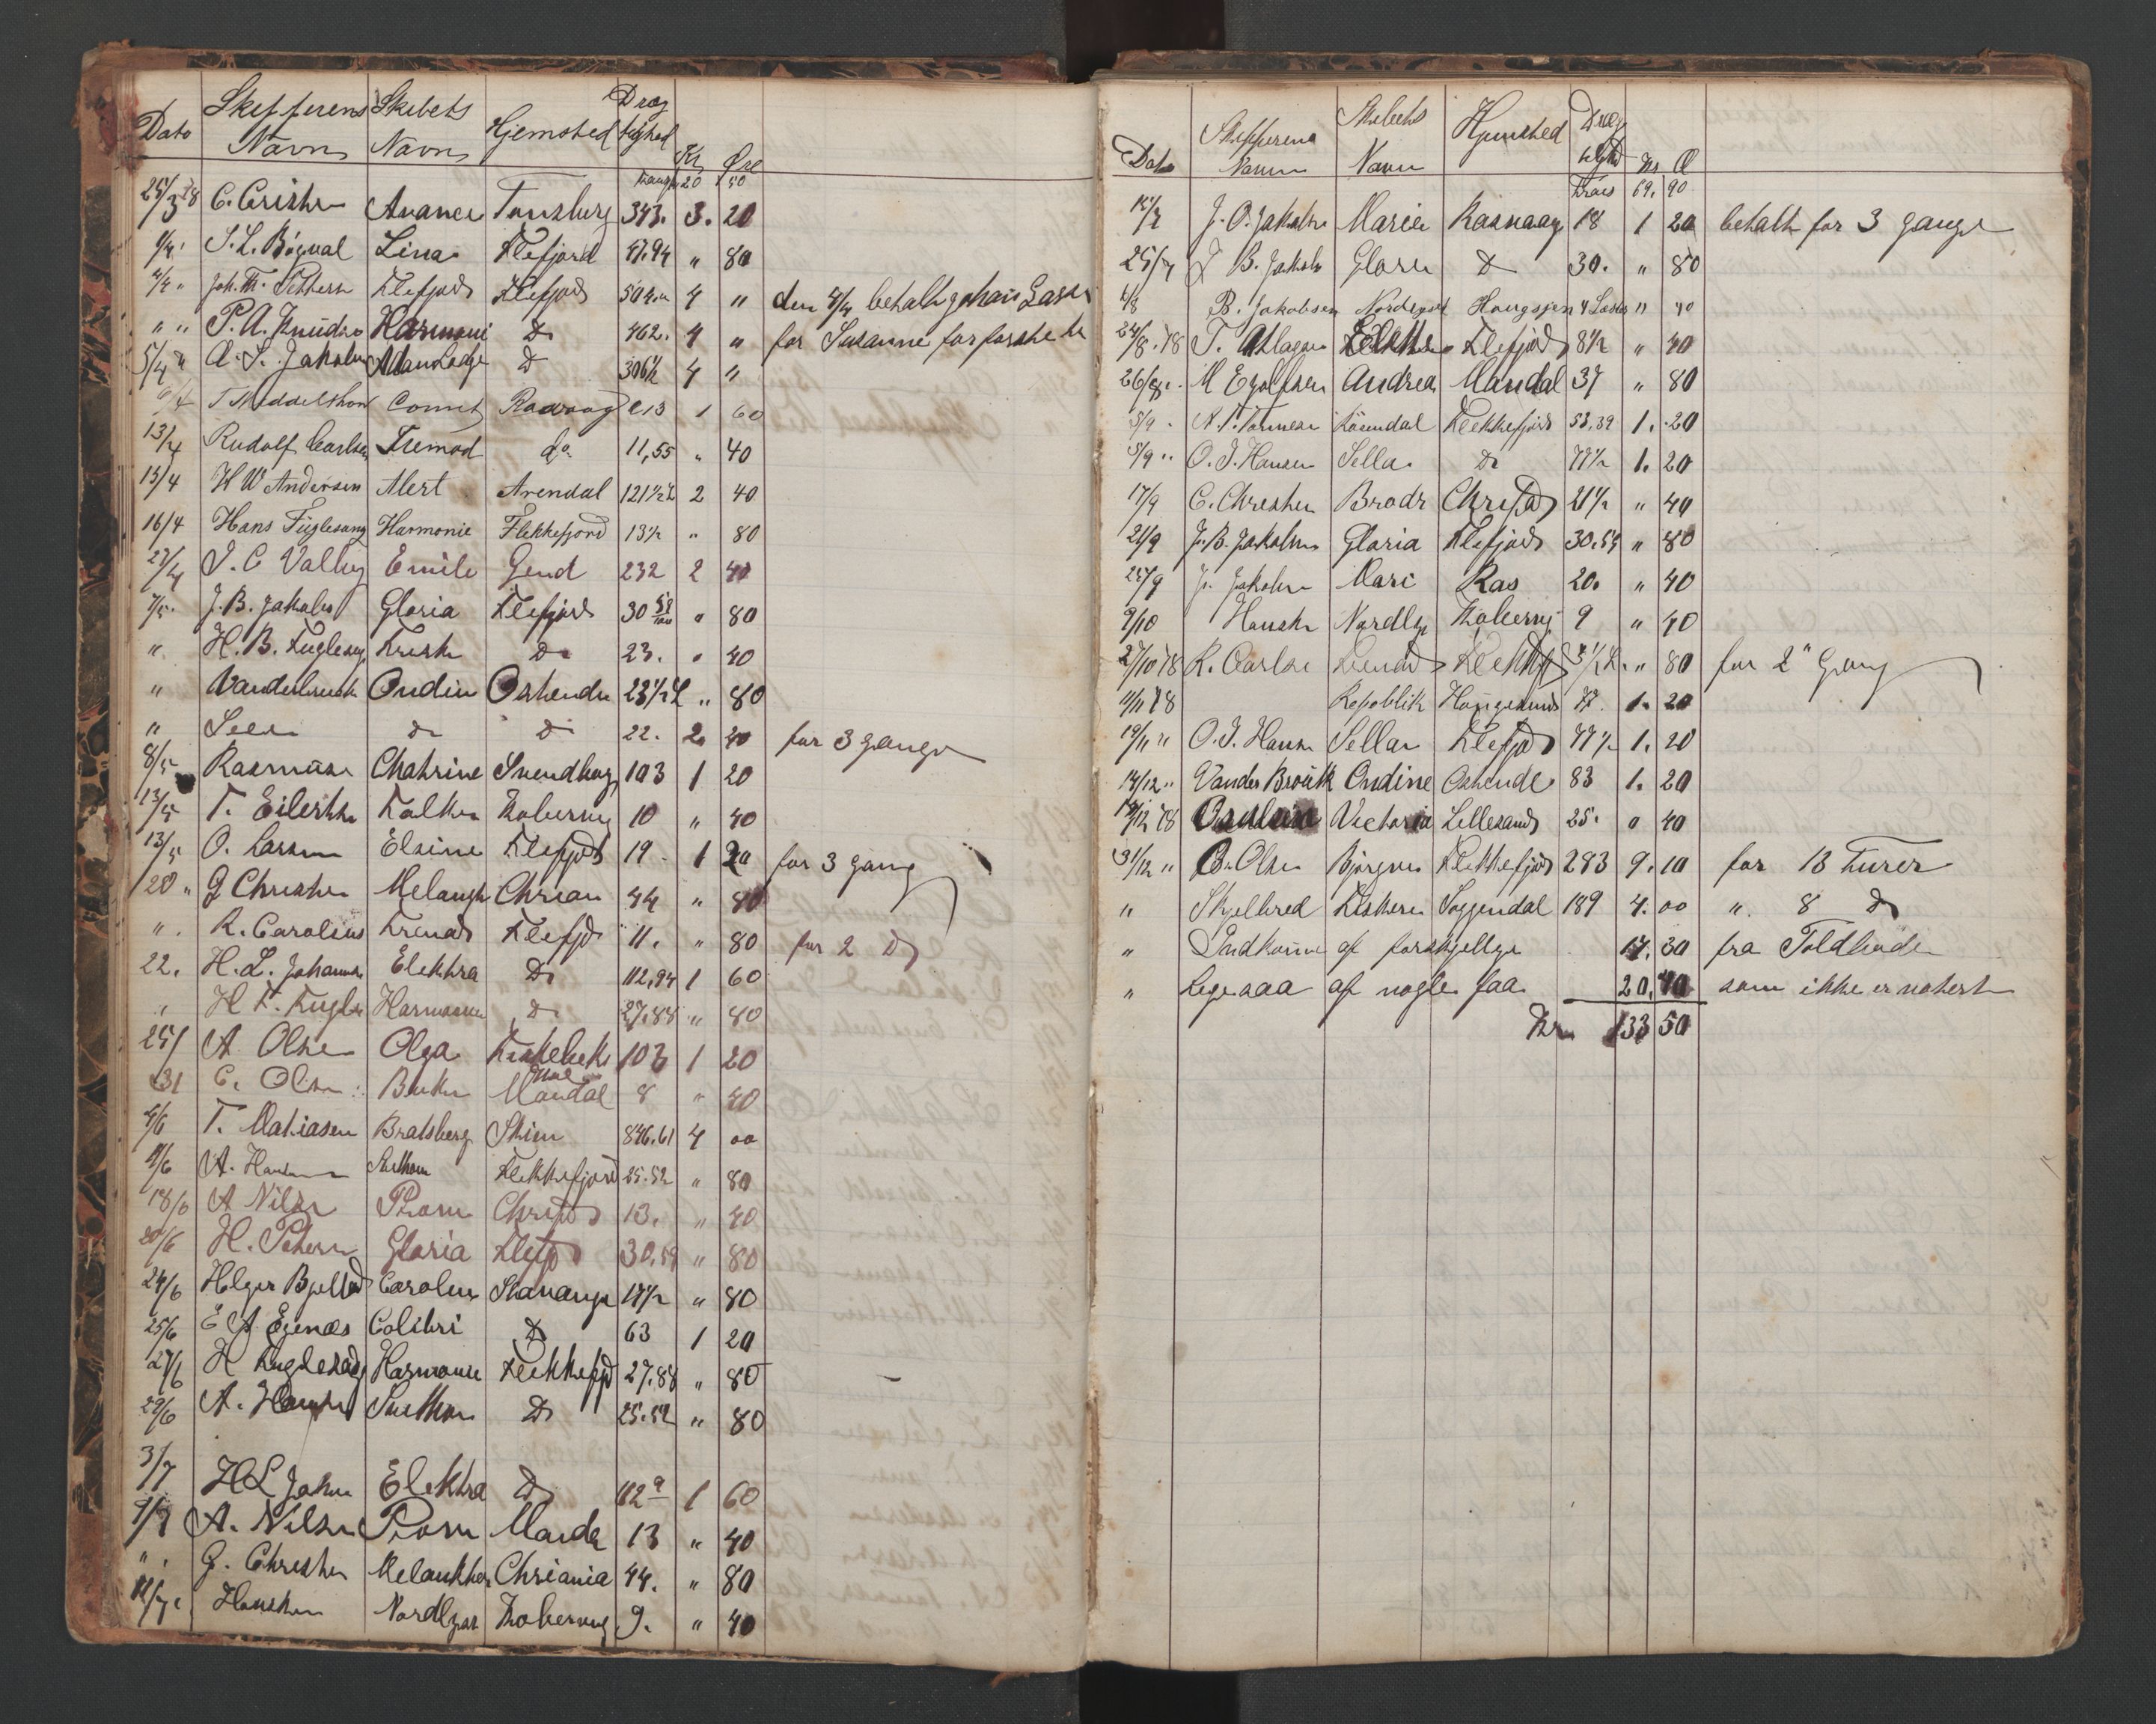 Dato Skipperens Navn Skibets Navn Hjemsted Dræg tighed Kr Øre
Transp 20 50
25/3 78 C. Cristen Avance Tønsberg 343. 3. 20
1/4 Lina Flefjord 47.94 " 80
4/4 " Joh. Th. Flefjord Flefjord 504 4 " den 4/4 betalt Johan
" " P. A. Knudsen Harmoni Do 462. 4 " for Susanne for
5/4 " A. S. Jakobsen Do 306½ 4 "
6/4 T Middelthon Comet Raavaag 213 1 60
13/4 Rudolf Carlsen Fremad do. 11,55 " 40
15/4 H W Andersen Alert Arendal 121½ L 2 40
16/4 Hans Fuglesang Harmonie Flekkefjord 13½ " 80
27/4 J. C Emile Gend 232 2 40
7/5. J. B. Jakobs Gloria Flefjord 30 59/100 " 80
" H. B. Fuglesag Do 23. " 40
" Vanderbrouk Ondin Ostende 23½ L " 80
" do do 22. 2. 40 for 3 gange
8/5 Rasmusen Chatrine Svendborg 103 1 20
13/5 T. Eilertsen Falken Kobervig 10 " 40
13/5 O. Larsen Elsine Flefjord 19. 1 20 for 3 gang
20 " G Christen Melangt Chrian 44 " 80
" . R. Carolius Fremad Flefjd 11. " 80 for 2 Do
22. H. L. Johannes Elektra Do 112,94 1 60
" H F. Fugles Harmonien Do 27.88 " 80
25/ A Olsen Olga 103 1 20
31 C. Olsen Mandal 8 " 40
4/6 T. Mathiasen Bratsberg Skien 846.61 4 00
11/6 A. Hansen Flekkefjord 25.52 " 80
18/6 A Nilsen Chrisd 13. " 40
20/6 H. Petersen Gloria Flefjd 30,59 " 80
24/6 Helger Bjelland Caroline Stavanger 17½ " 80
25/6 E A Egenæs Colibri Do 63 1 20
27/6 H Fuglesang Harmonie Flekkefjd 27.88 " 80
29/6 A. Hansen Do 25.52 " 80
3/7 H L Johan Elektra Do 112 9 1 60
9/7 A. Nilsen Mandal 13 " 40
" . G. Christen Melankton Chriania 44. " 80
11/7 Hansken Nordlyset Kobervig 9. " 40
Dato Skipperens Navn Skibets Navn Hjemsted Dræg tighed Kr Ø
Trans 69. 90
J. O. Jakobsen Marie Rasvaag 18 1 20 betalt for 3 gange
25/7 J B. Jakobs Gloria Do 30. " 80
1/8 B. Jakobsen Nordlyset Haugsjen 4 Læster " 40
24/8. 78 T. Elektra Flefjord 8½ " 40
26/8 . M Egolfsen Andrea Mandal 37 " 80
5/9 . N. T. Tønnesen Rosendal Flekkefjord 53.39 1. 20
5/9 " O. J. Hansen Sella Do 77½ 1. 20
17/9 C. Christen Brødr Chrisd 21½ " 40
21/9 J. B. Jakobsen Gloria Flefjord 30.59 " 80
25/9 J. Jakobsen Mari Ras 20. " 40
9/10 Hansken Nordlys Kobervig 9 " 40
27/10 78 R. Carlsen Fremad Flekkefjd " 80 for 2" Gang
11/11 78 Republik Haugesund 77. 1. 20
19/11 " O. J. Hansen Sella Flefjord 77½ 1. 20
14/12 " Vander Brouk Ondine Ostende 83 1. 20
19/12 78 Victoria Lillesand 25. " 40
31/12 " B. Olsen Bjørgvin Flekkefjord 283 9. 10 for 13 Turer
" Skjelbred Fiskeren Soggendal 189 4. 00 " 8 Do
" Indkomne af forskjellige 17. 30 fra Toldboden
" Ligesaa af nogle faa 20, 40 som ikke er notert
Kr 133 50